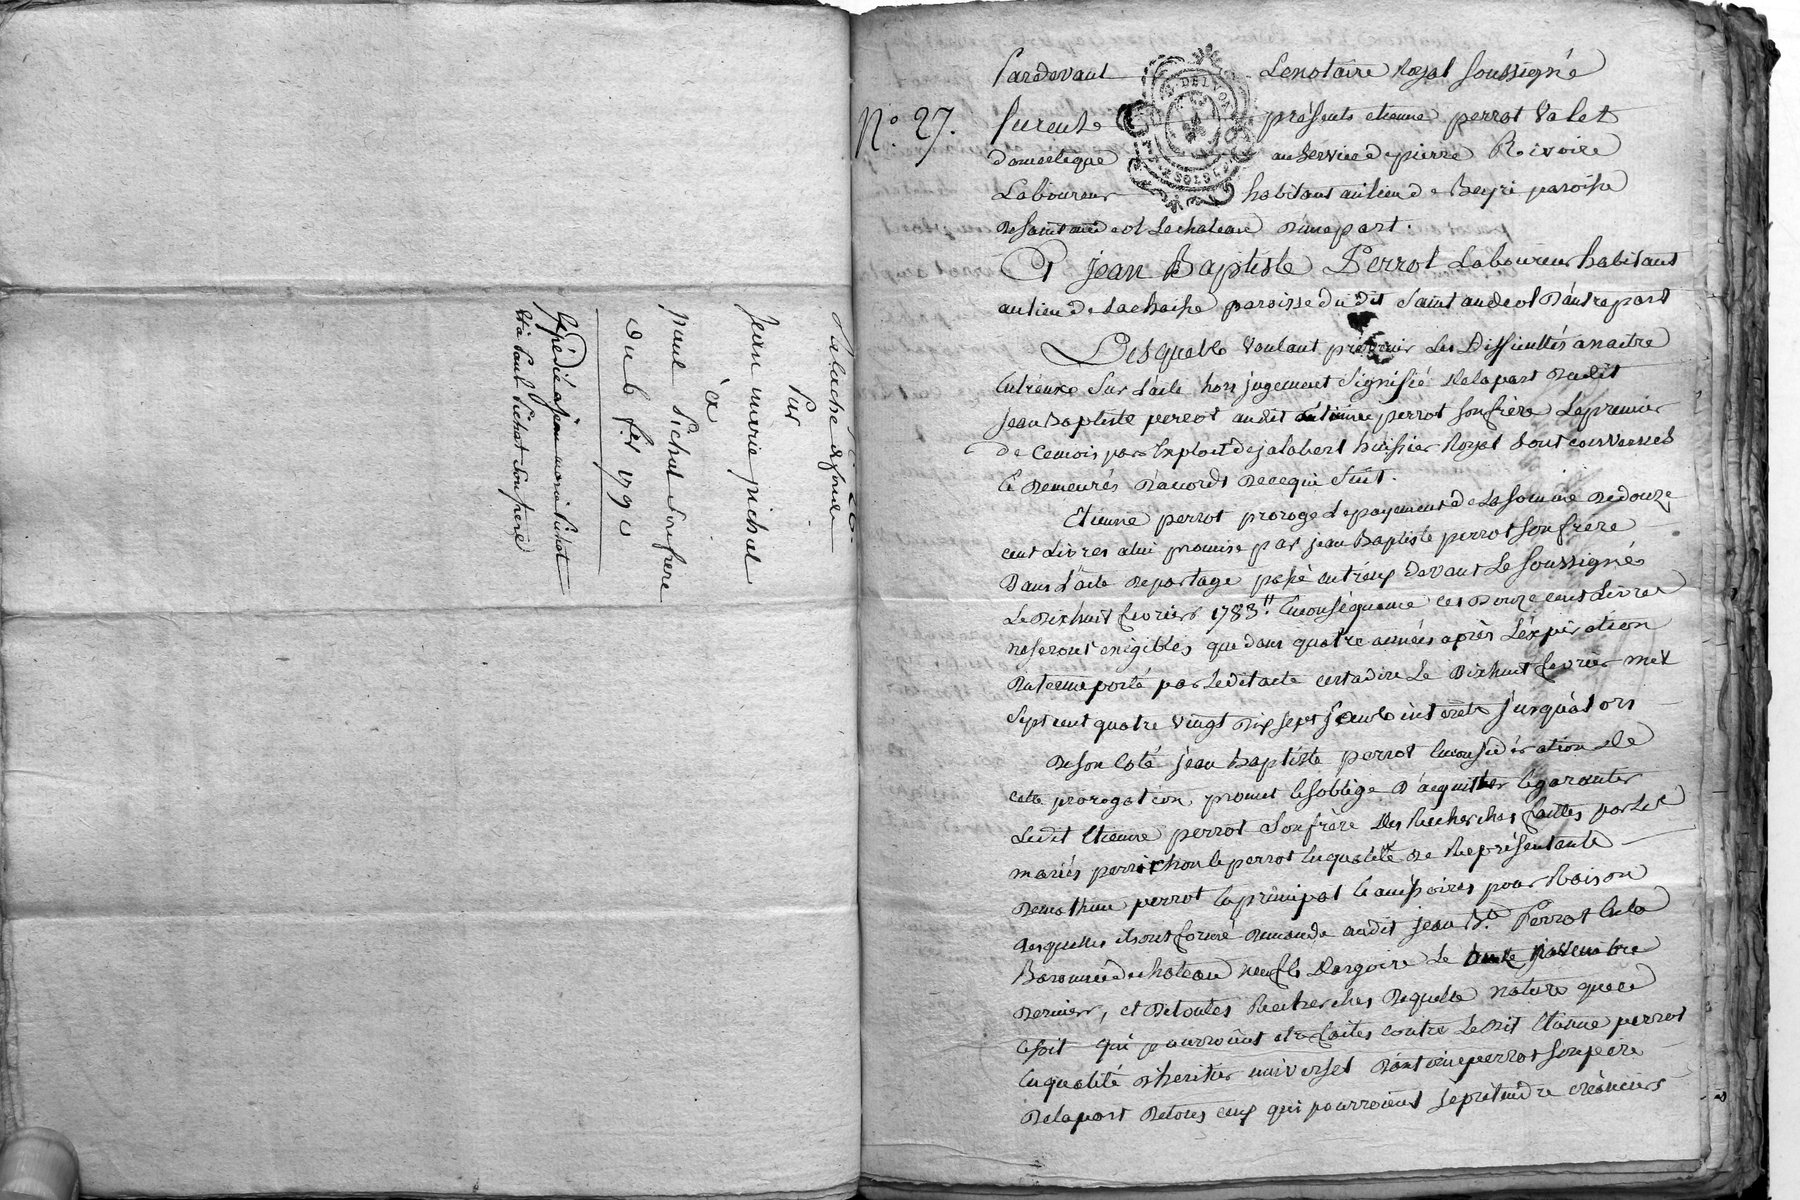 Relache & foulle
Sur
Jean marie pichat
à
paul Pichat son frere
du 6 fer 1790
Expedié a jean marie Pichat
et à Paul Pichat son frere
N° 27.
Pardevant Le notaire Royal soussigné
furent présents etienne perrot valet
domestique au service de pierre Rivoire
Laboureur habitant au lieu de Beyri paroisse
de saint andeol Le chateau d'une part.
Et jean Baptiste Perrot Laboureur habitant
au lieu de La chaise paroisse du dit Saint andeol d'autre part
Lesquels voulant prévenir Les Difficultés a naitre
Entreux sur L'acte hors jugement signifié de la part dudit
jean Baptiste perrot audit etienne perrot son frère Le premier
de ce mois par Exploit de jalabert huissier Royal sont convenus
& demeurés d'accords de ce qui suit.
Etienne perrot proroge Le payement de La somme de douze
cent Livres a lui promise par jean Baptiste perrot son frere
dans L'acte de partage passé entreux devant Le soussigné
Le dix huit fevrier 1783. En conséquence ces douze cent Livres
ne seront exigibles que dans quatre années après L'expiration
du terme porté par Ledit acte cest a dire Le dix huit fevrier mil
sept cent quatre vingt dix sept sans interets jusqu'alors
de son coté jean Baptiste perrot En considération de
cette prorogation promet & s'oblige d'acquitter & garantir
Ledit Etienne perrot son frère des Recherches faites par Les
mariés perrichon & perrot En qualité de Représentants
de mathieu perrot En principal & accessoires pour Raison
desquelles ils ont formé demande audit jean Bte Perrot En la
Baronnie de chateau neuf & dargoire Le trente Novembre
dernier, et de toutes Recherches de quelle nature que ce
soit qui pourroient etre faites contre Ledit Etienne perrot
En qualité d'heritier universel d'antoine perrot son pere
de la part de tous ceux qui pourroient se prétendre créanciers